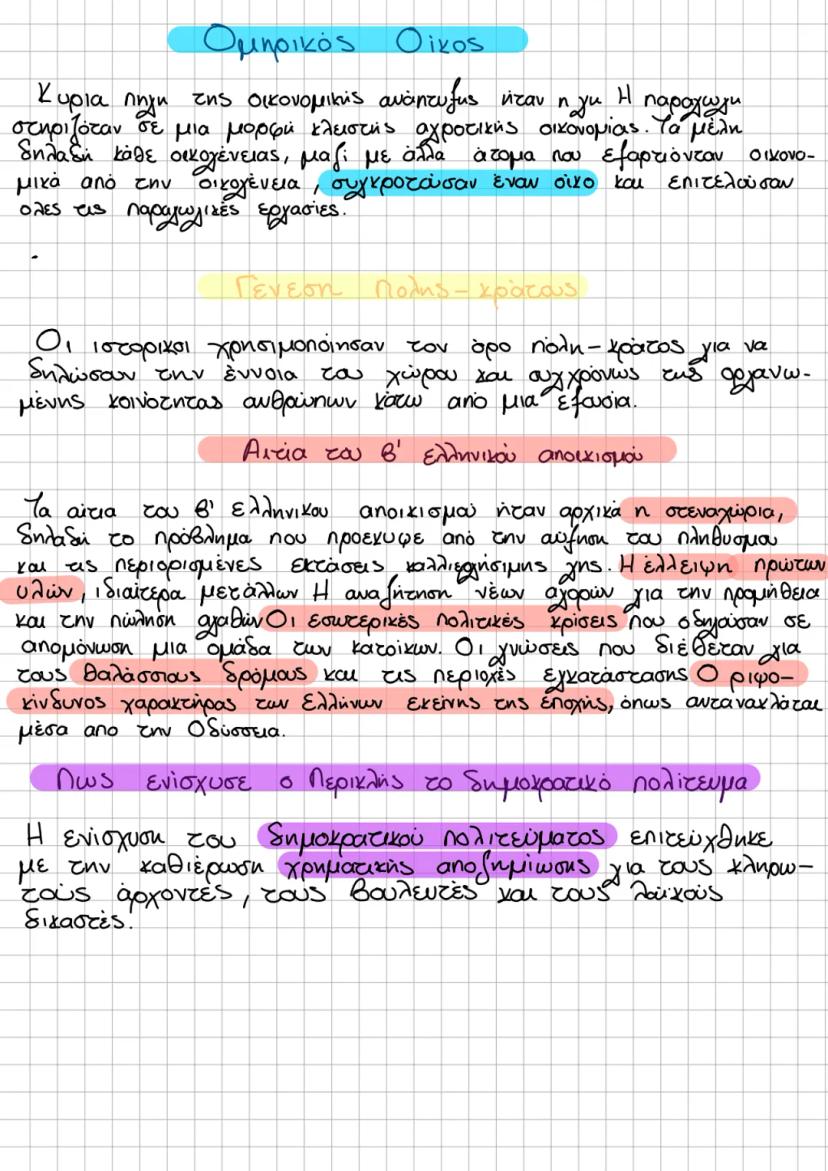 Ομηρικός Οίκος
Κυρια πηγη της οικονομικής ανάπτυξης ήταν η γη Η παραγωγη
στηριζόταν σε μια μορφή κλειστής αγροτικής οικονομίας. Τα μέλη
δηλαδή κάθε οικογένειας, μαζί με άλλα άτομα που εξαρτιόνταν οικονο-
μικά από την οικογένεια, συγκροτούσαν έναν οίκο και επιτελούσαν
ολες τις παραγωγικές εργασίες.
.
Γένεση Πολης-κράτους
Οι ιστορικοι χρησιμοποίησαν τον όρο πόλη-κράτος για να
δηλώσουν την έννοια του χώρου και συγχρόνως της οργανω-
μένης κοινότητας ανθρώπων κάτω από μια εξουσία.
Αιτία του β' ελληνικού αποικισμού
Τα αίτια του β' ελληνικου αποικισμού ήταν αρχικά η στεναχώρια,
δηλαδή το πρόβλημα που προέκυψε από την αύξηση του πληθυσμου
και τις περιορισμένες εκτάσεις καλλιεργήσιμης γης. Η έλλειψη πρώτων
υλών, ιδιαίτερα μετάλλων Η αναζήτηση νέων αγορών για την προμήθεια
και την πώληση αγαθών Οι εσωτερικές πολιτικές κρίσεις που οδηγούσαν σε
απομόνωση μια ομάδα των κατοίκων. Οι γνώσεις που διέθεταν για
τους θαλάσσιους δρόμους και τις περιοχές εγκατάστασης Ο ριψο-
κίνδυνος χαρακτήρας των Ελλήνων εκείνης της εποχής, όπως αντανακλάται
μέσα απο την Οδύσσεια.
Πως ενίσχυσε ο Περικλής το δημοκρατικό πολίτευμα
Η ενίσχυση του δημοκρατικού πολιτεύματος επιτεύχθηκε
με την καθιέρωση χρηματικής αποζημίωσης για τους κληρω-
τούς άρχοντες, τους βουλευτές και τους λαϊκούς
δικαστές.